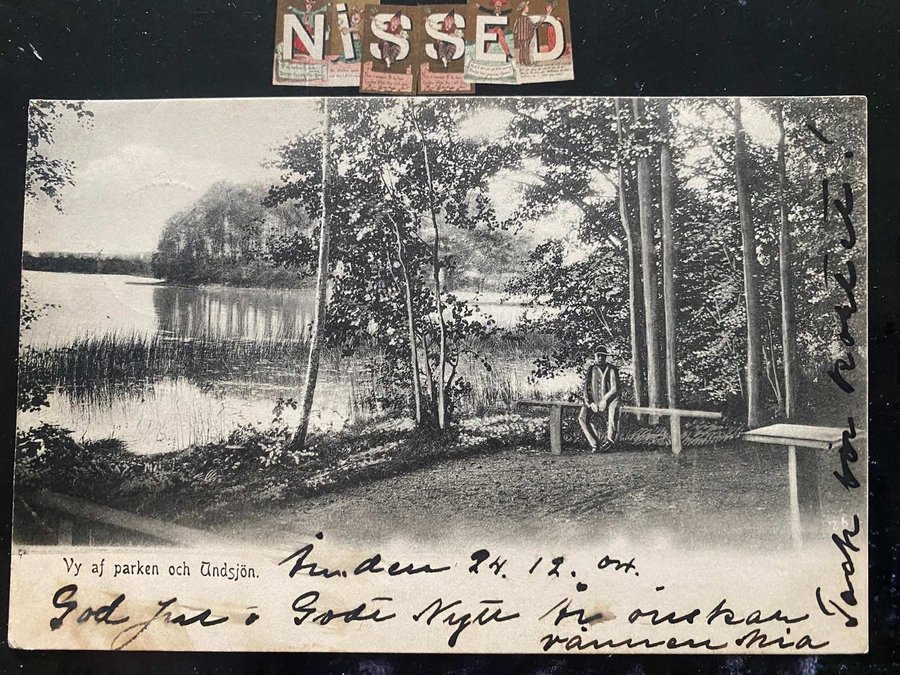 NiSSED
Vy af parken och Undsjön.
den 24. 12. 04.
God Jul o Godt Nytt År önskar
vännen Mia
Tack för kortet!